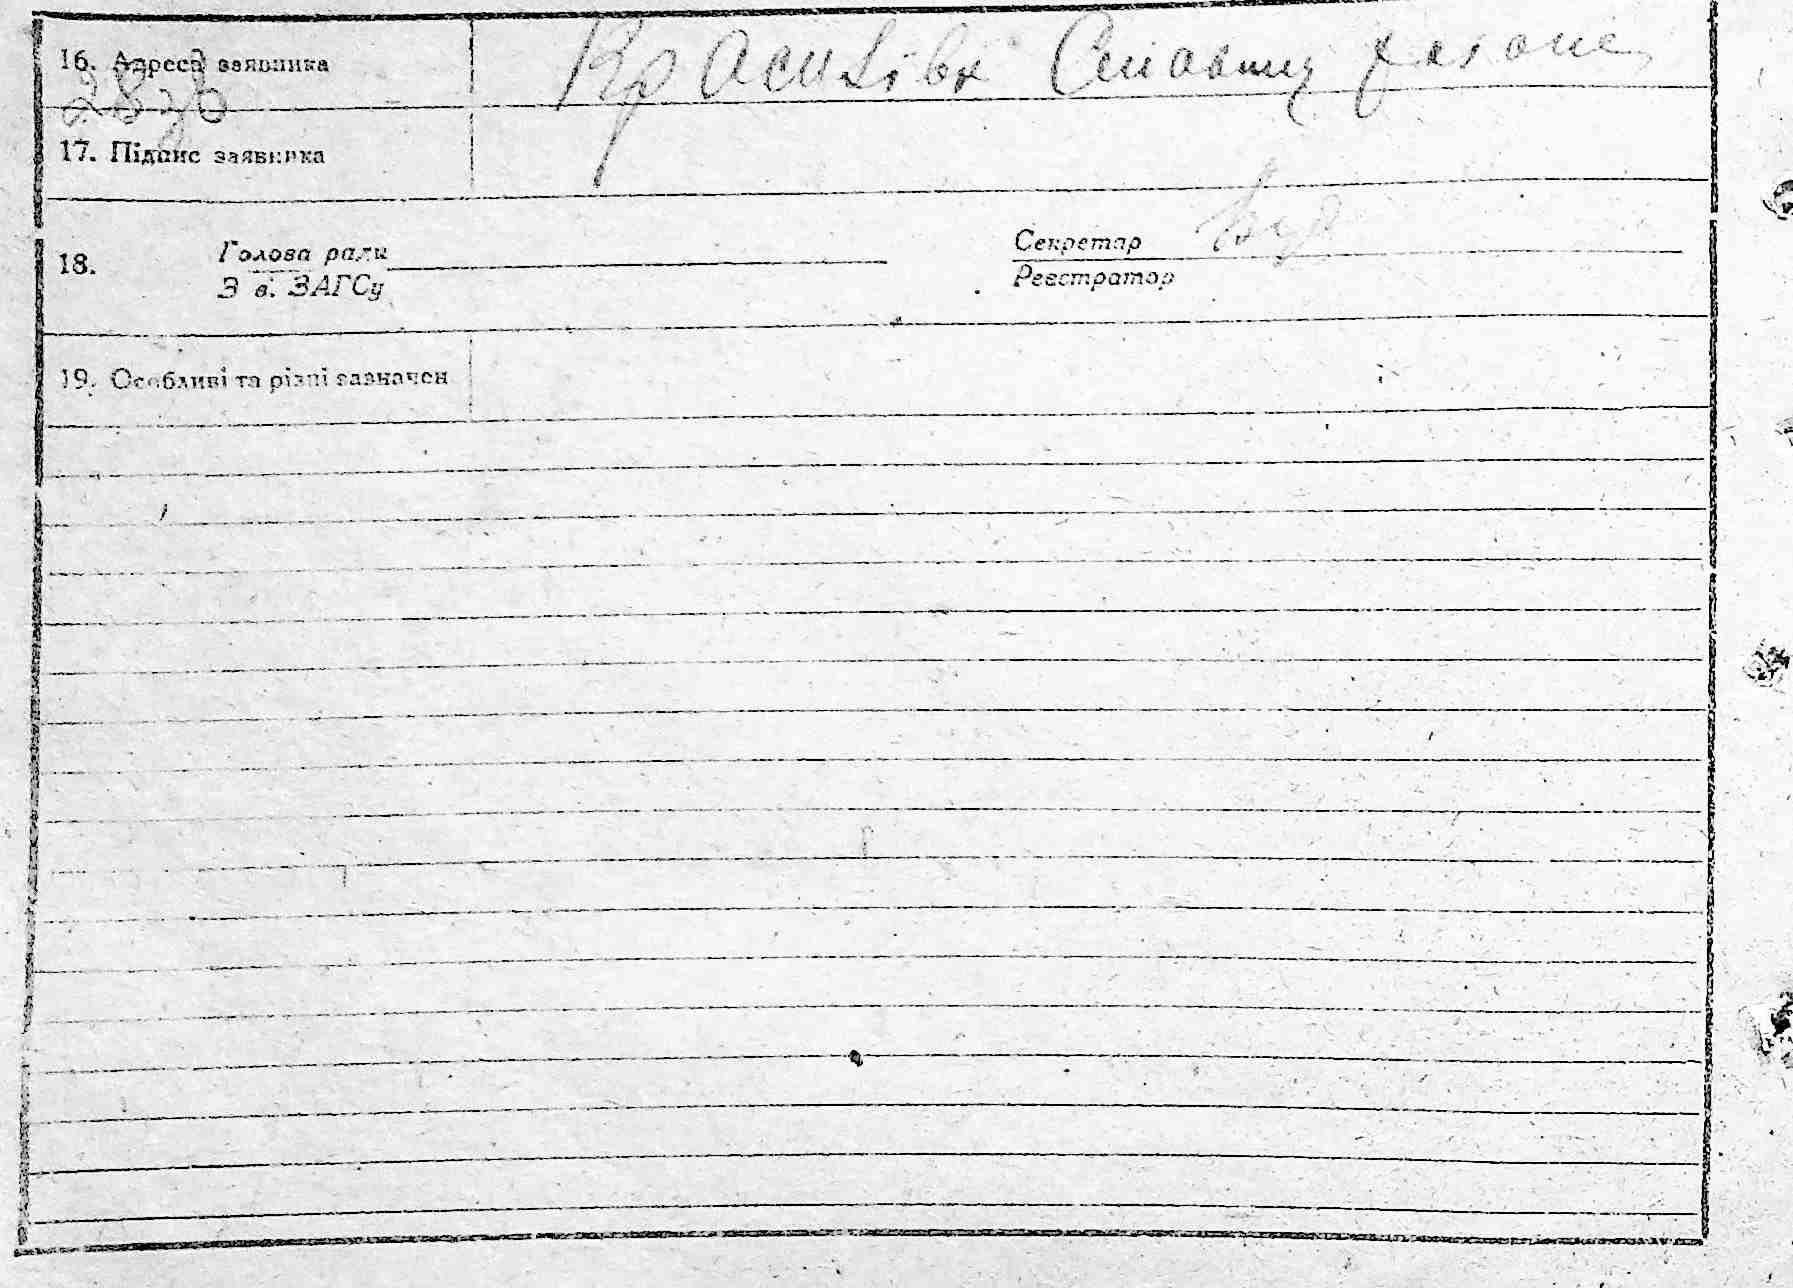 16. Адреса заявника Красилівк
17. Підпис заявника
18. Голова ради Секретар
З в. ЗАГСу Реєстратор
19. Особливі та різні зазначен